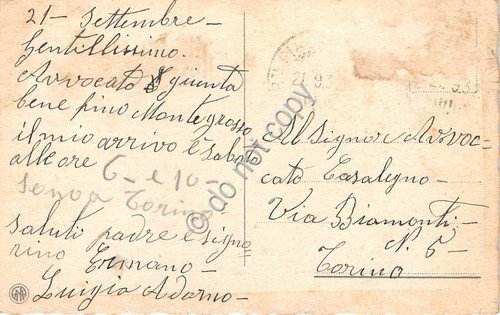 21 - Settembre -
Gentillissimo.
Avvocato giunta
bene fino Montegrosso
il mio arrivo è Sabato
alle ore 6 - e 10 -
sono a Torino
saluto padre e signo
rino Ermano -
Luigia Adorno -
Al Signor Avvoc-
cato Casalegno -
Via Biamonti -
N. 5 -
Torino
do not copy